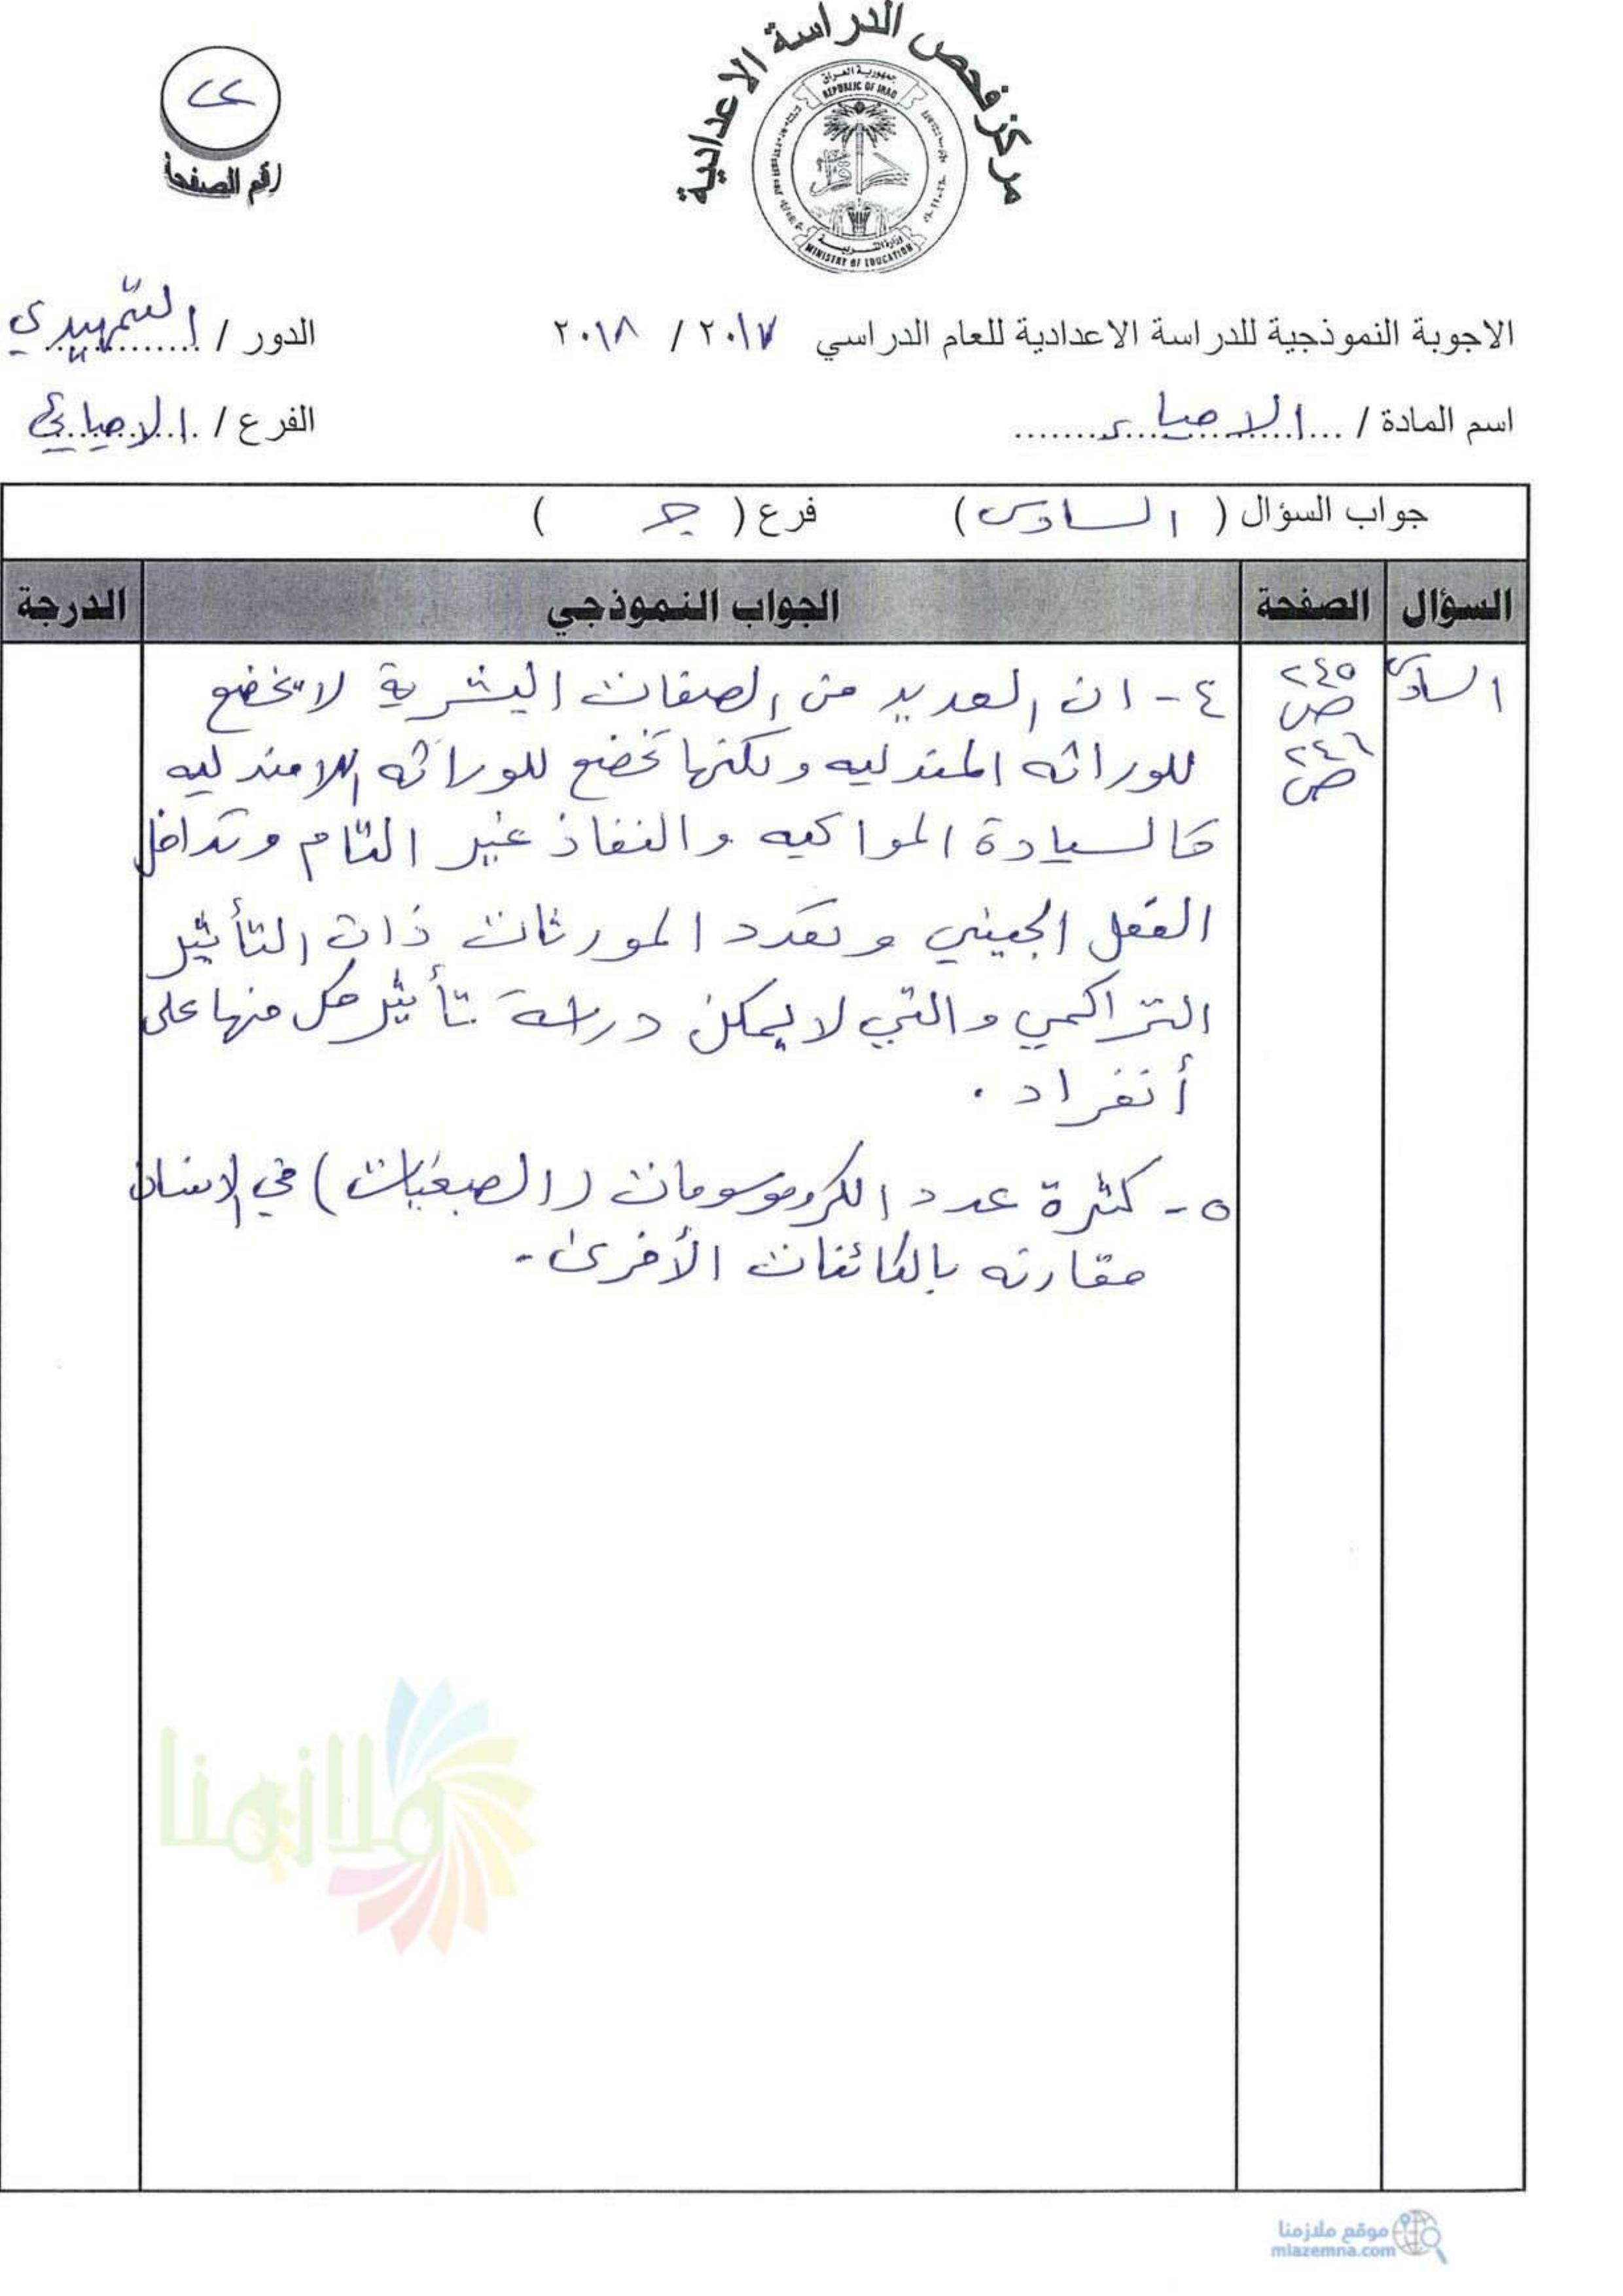 مركز فحص الدراسة الاعدادية
جمهورية العراق
REPUBLIC OF IRAQ
وزارة التربية
MINISTRY OF EDUCATION
٢٢
رقم الصفحة
الاجوبة النموذجية للدراسة الاعدادية للعام الدراسي ٢٠١٧ / ٢٠١٨
الدور / التمهيدي
اسم المادة / الاحياء
الفرع / الاحيائي
جواب السؤال ( السادس ) فرع ( جـ )
السؤال الصفحة الجواب النموذجي الدرجة
السادس
٢٤٥
ص
٢٤٦
ص
٤- ان العديد من الصفات البشرية لا تخضع
للوراثه المندليه ولكنها تخضع للوراثه اللامندليه
كالسيادة المواكبه والنفاذ غير التام وتداخل
الفعل الجيني وتعدد المورثات ذات التأثير
التراكمي والتي لا يمكن دراسة تأثير كل منها على
أنفراد .
٥- كثرة عدد الكروموسومات (الصبغيات) في الانسان
مقارنه بالكائنات الأخرى .
ملازمنا
موقع ملازمنا
mlazemna.com